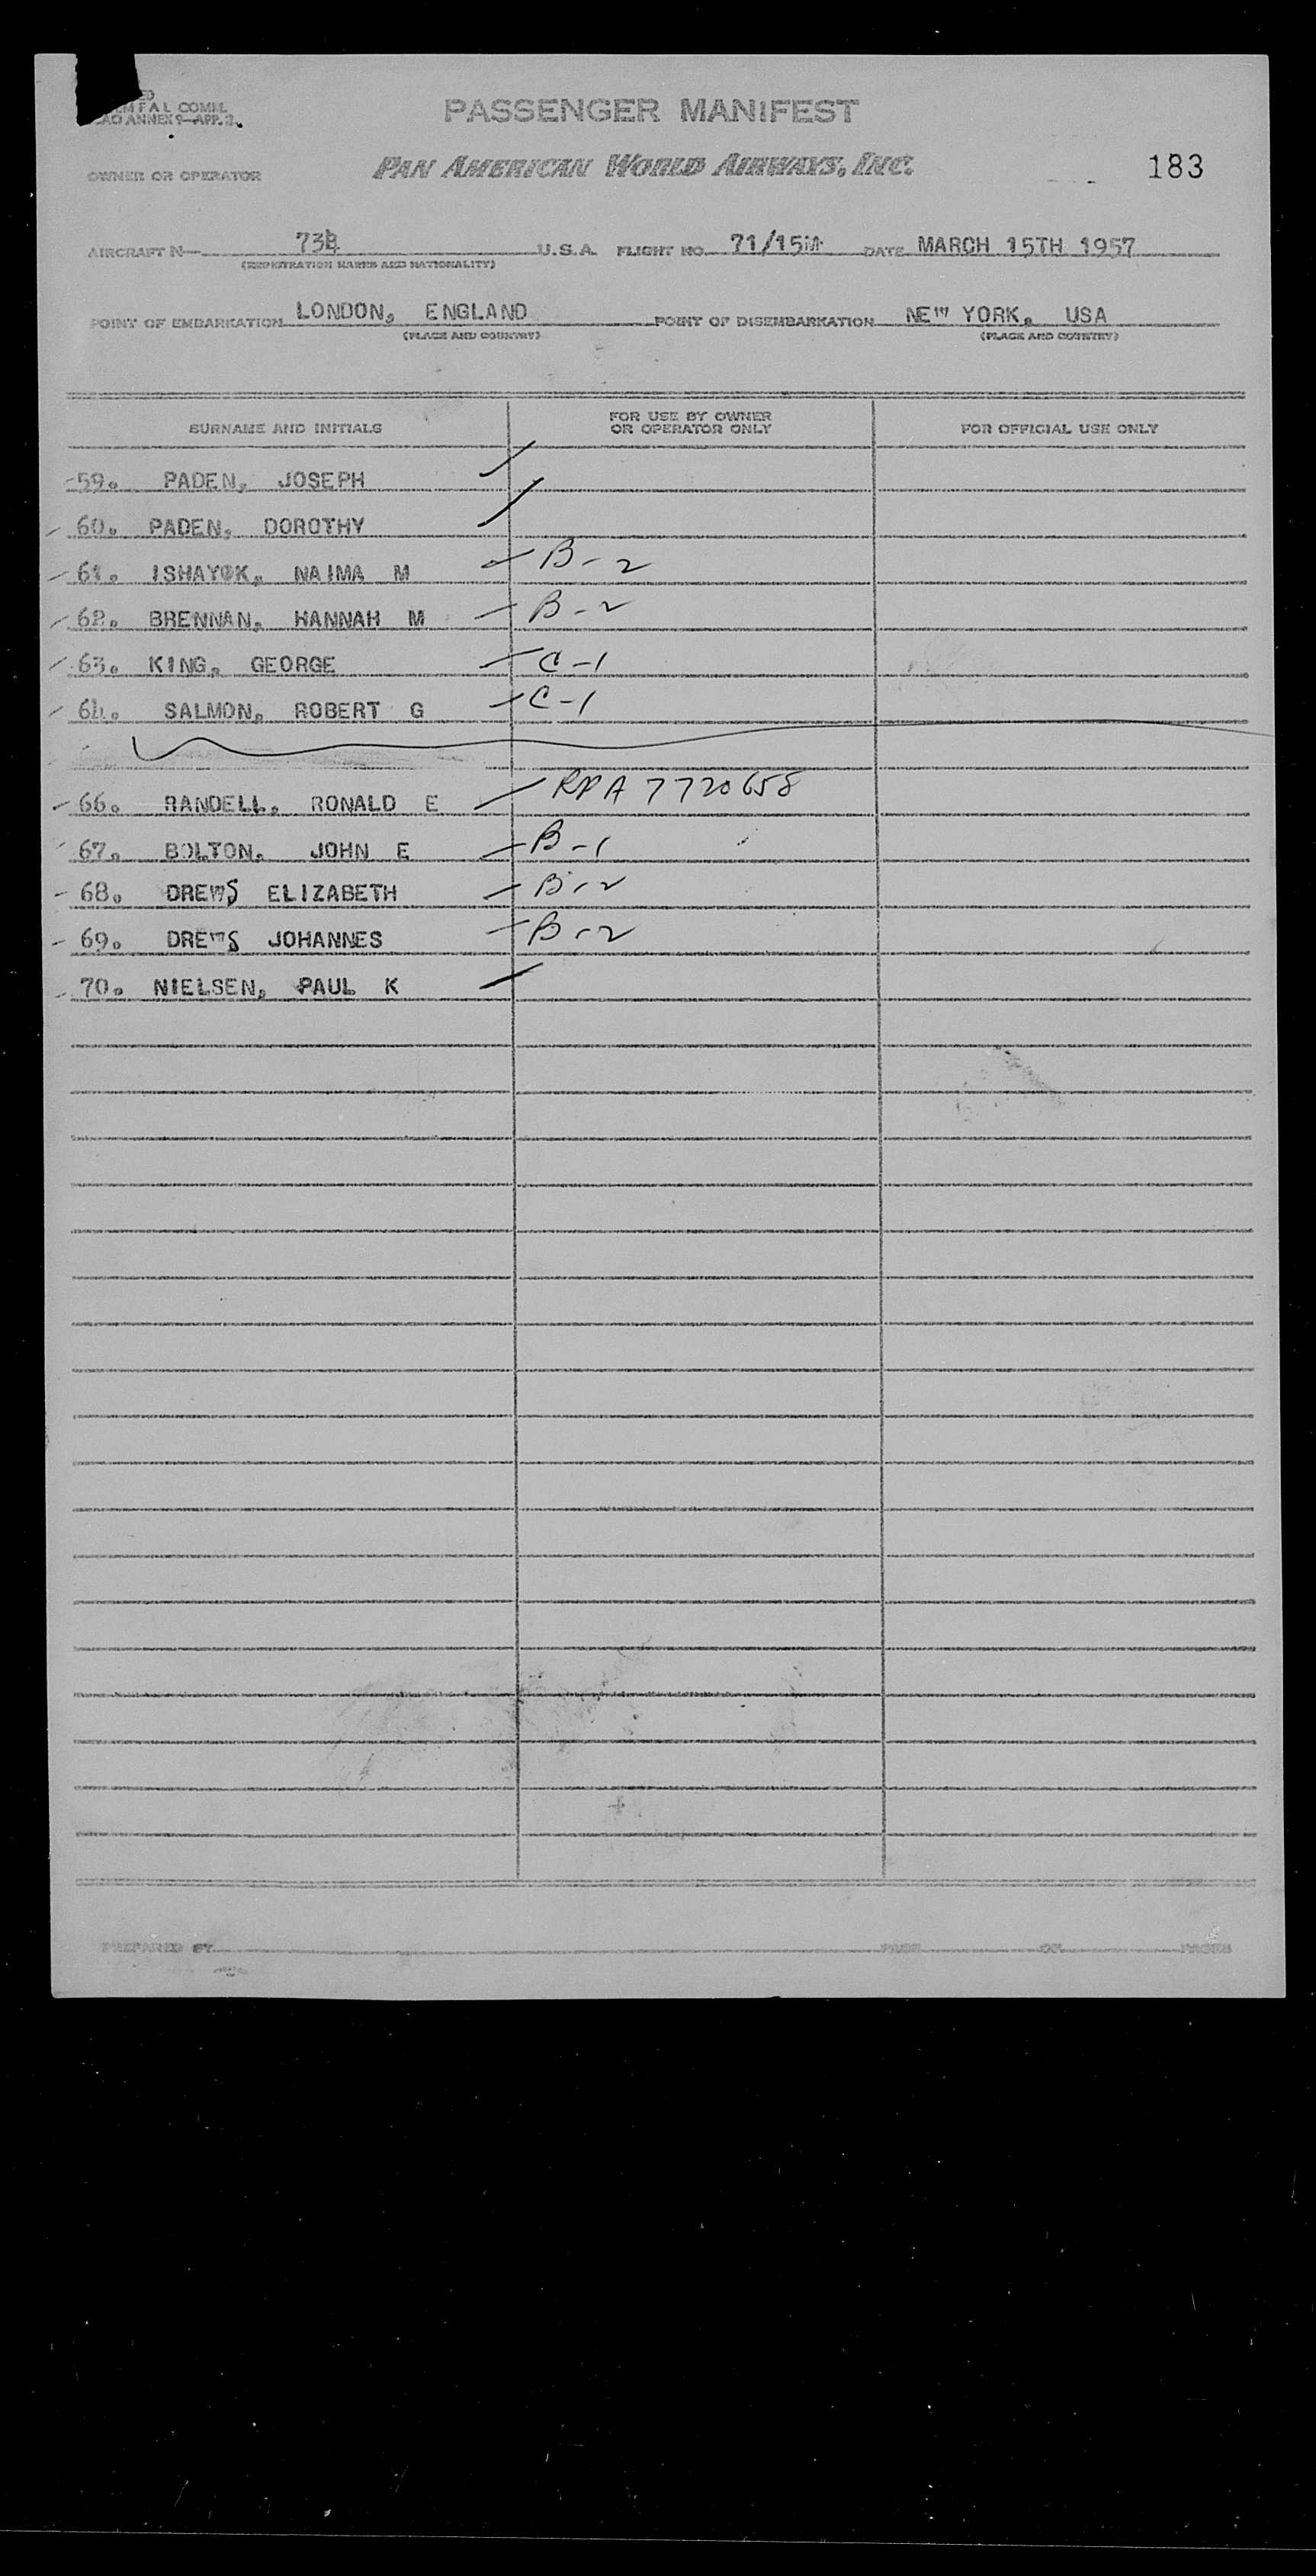 FAL COMM.
ANNEX 9—APP. 2.
PASSENGER MANIFEST
OWNER OR OPERATOR PAN AMERICAN WORLD AIRWAYS, INC. 183
AIRCRAFT N— U.S.A. FLIGHT NO. 71/15M DATE MARCH 15TH 1957
(REGISTRATION MARKS AND NATIONALITY)
POINT OF EMBARKATION LONDON, ENGLAND POINT OF DISEMBARKATION NEW YORK, USA
(PLACE AND COUNTRY) (PLACE AND COUNTRY)
SURNAME AND INITIALS FOR USE BY OWNER OR OPERATOR ONLY FOR OFFICIAL USE ONLY
59. PADEN, JOSEPH
60. PADEN, DOROTHY
61. ISHAYOK, NAIMA M B-2
62. BRENNAN, HANNAH M B-2
63. KING, GEORGE C-1
64. SALMON, ROBERT G C-1
66. RANDELL, RONALD E RPA 7720658
67. BOLTON, JOHN E B-1
68. DREWS ELIZABETH B-2
69. DREWS JOHANNES B-2
70. NIELSEN, PAUL K
PREPARED BY PAGE OF PAGES